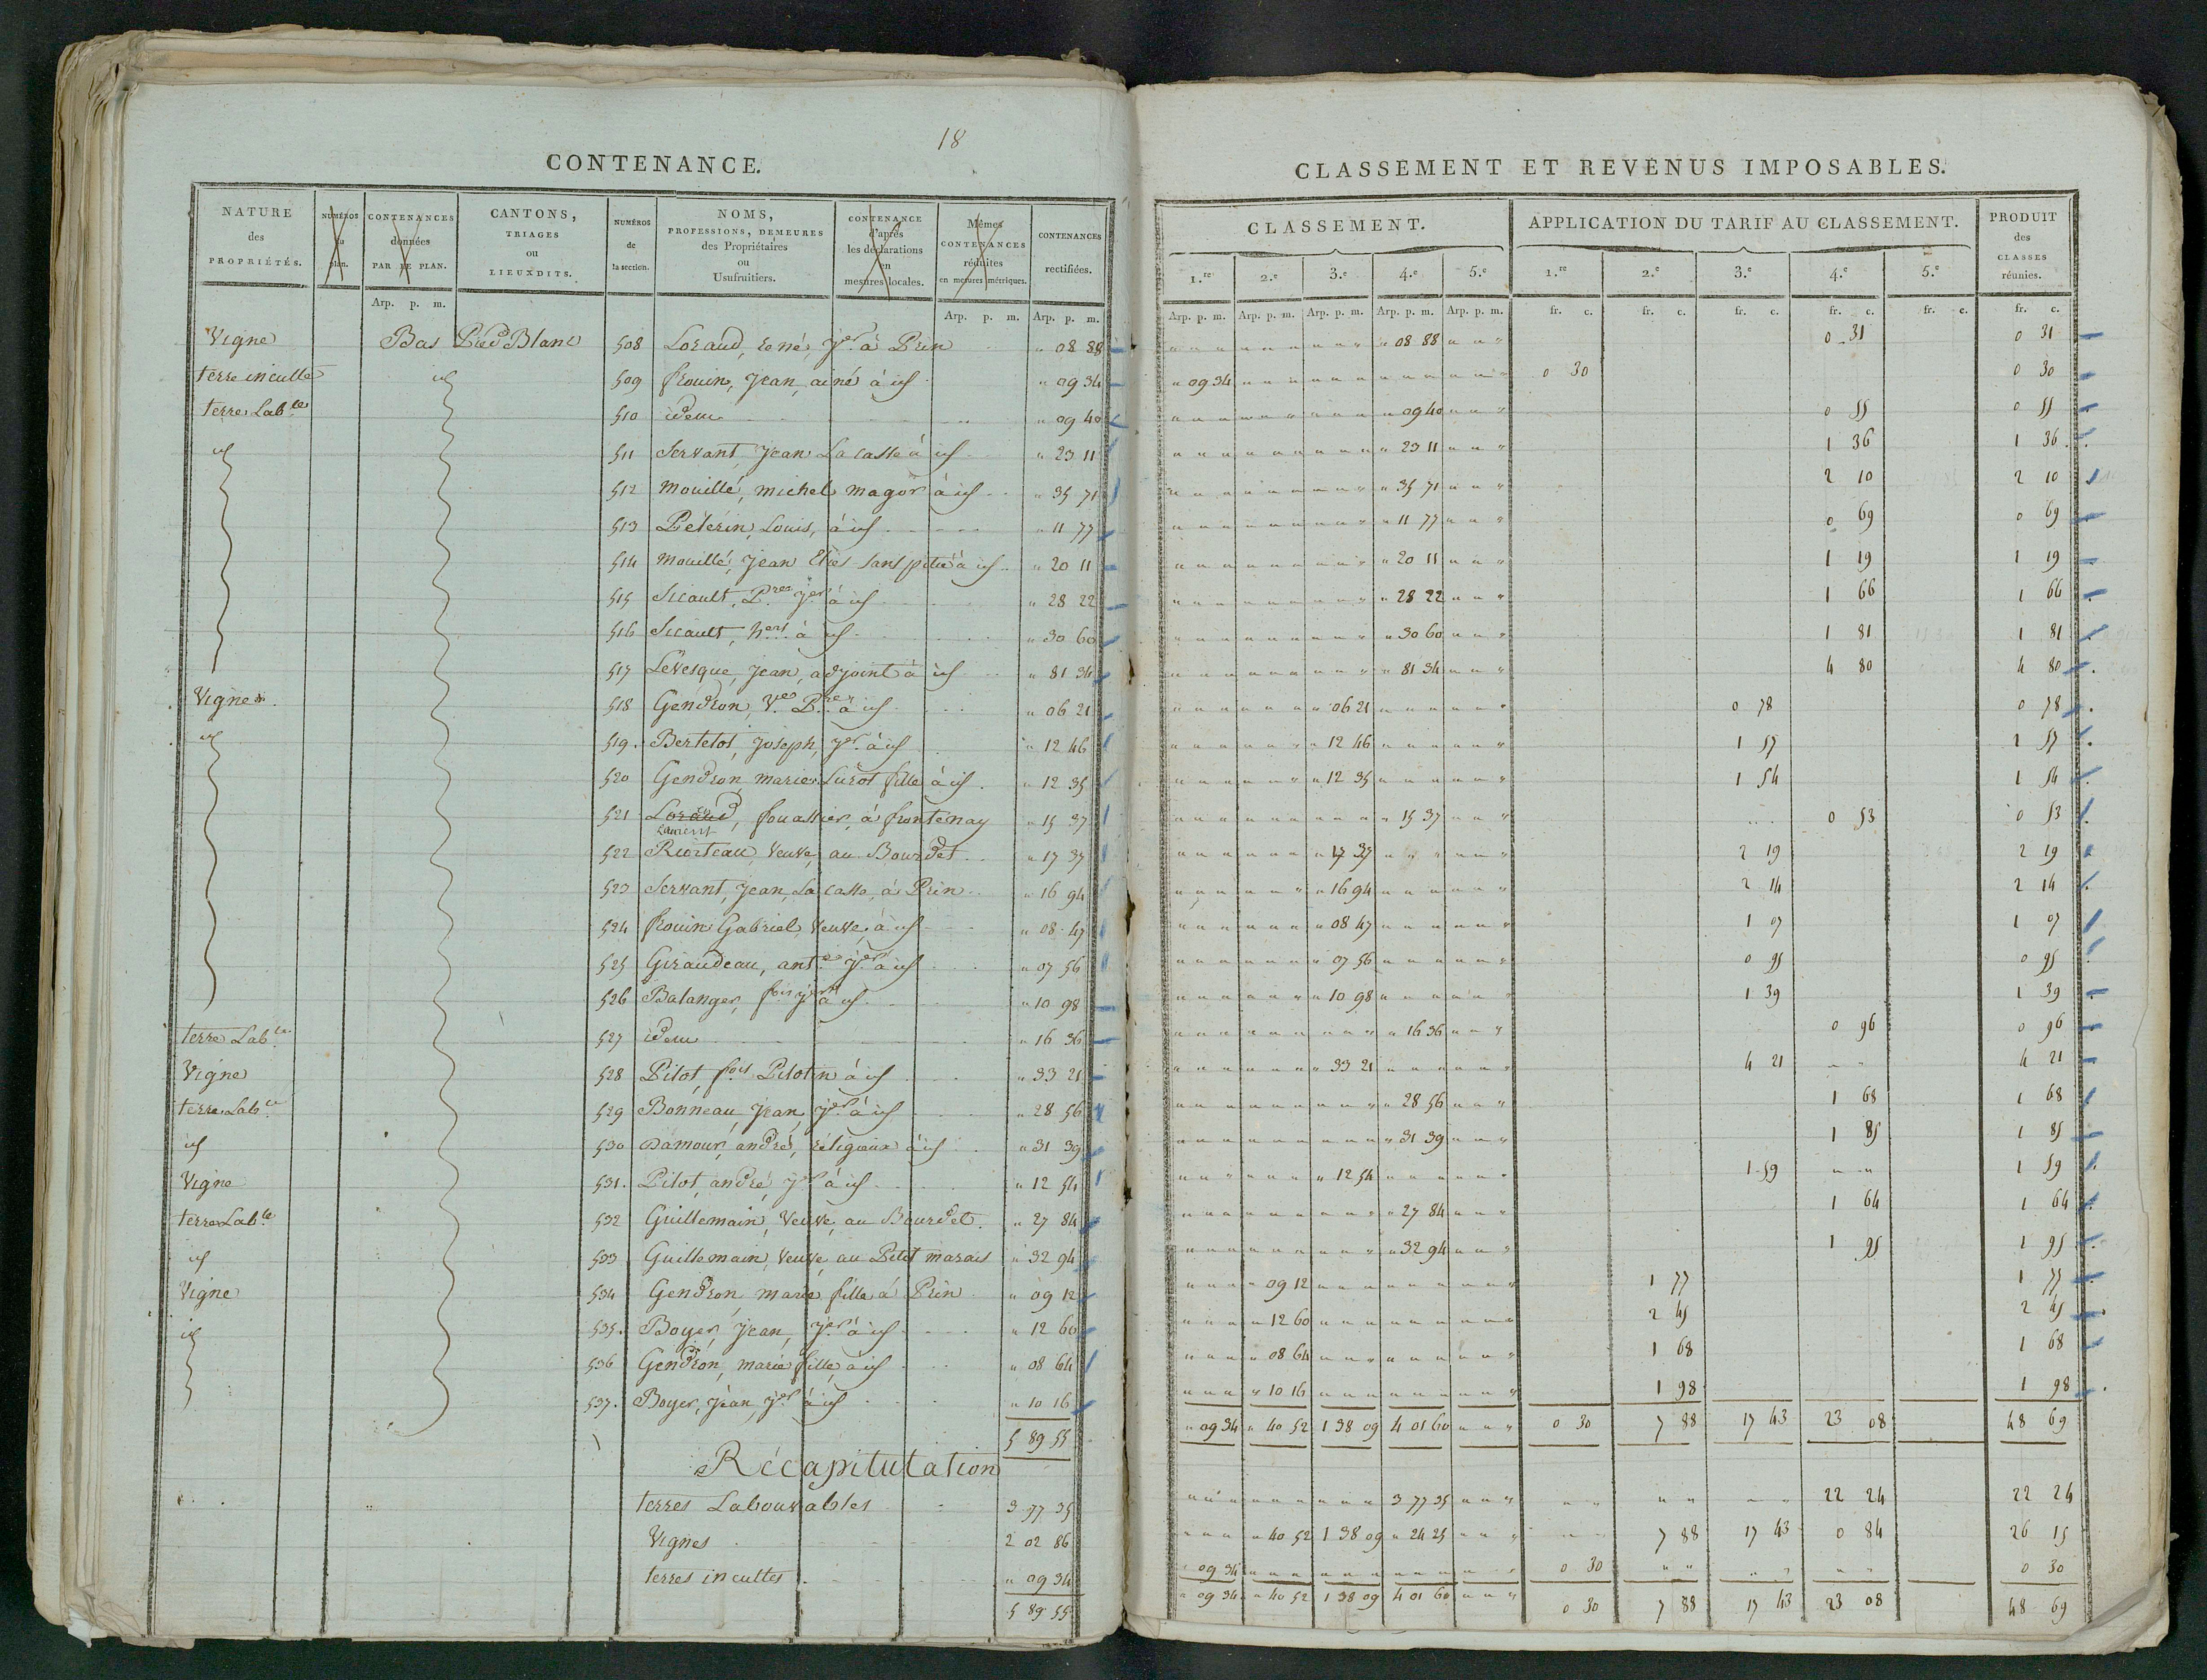 18
CONTENANCE.
NATURE des PROPRIÉTÉS. | NUMÉROS du plan. | CONTENANCES données PAR LE PLAN. | CANTONS, TRIAGES ou LIEUXDITS. | NUMÉROS de la section. | NOMS, PROFESSIONS, DEMEURES des Propriétaires ou Usufruitiers. | CONTENANCE d'après les déclarations en mesures locales. | Mêmes CONTENANCES réduites en mesures métriques. | CONTENANCES rectifiées.
Arp. p. m. | Arp. p. m. | Arp. p. m.
Vigne Bas Pied Blanc 508 Loraud, rené, jer. à Prin " 08 88
terre inculte id 509 frouin, Jean, ainé à id " 09 34
terre Lab.le 510 idem " 09 40
id 511 Servant, Jean La casse à id " 23 11
512 Mouillé, michel magor à id " 35 71
513 Pelerin, Louis, à id " 11 77
514 Mouillé, Jean Elies sans pitié à id " 20 11
515 Sicault, P.rre jer. à id " 28 22
516 Sicault, h.ers à id " 30 60
517 Levesque, Jean, adjoint à id " 81 34
Vigne 518 Gendron, V.e P.rre à id " 06 21
id 519. Bertelot, Joseph, jer. à id " 12 46
520 Gendron, marie Surot fille à id " 12 35
521 Loraud, fouassier, à frontenay " 15 37
Laurent
522 Riorteau, Veuve, au Bourdet " 17 37
523 Servant, Jean, La casse, à Prin " 16 94
524 frouin Gabriel, Veuve, à id " 08 47
525 Giraudeau, ant.e jer. à id " 07 56
526 Balanger, fois jer. à id " 10 98
terre Lab.le 527 idem " 16 36
Vigne 528 Pilot, fois Pilotin à id " 33 21
terre Lab.le 529 Bonneau, Jean, jer. à id " 28 56
id 530 Damour, andré, réligieux à id " 31 39
Vigne 531. Pilot, andré, jer. à id " 12 54
terre Lab.le 532 Guillemain, Veuve, au Bourdet " 27 84
id 533 Guillemain, Veuve, au Petit marais " 32 94
Vigne 534 Gendron, marie fille à Prin " 09 12
id 535. Boyer, Jean, jer. à id " 12 60
536 Gendron, marie fille, à id " 08 64
537. Boyer, Jean, jer. à id " 10 16
5 89 55
Récapitulation
terres Labourables 3 77 35
Vignes 2 02 86
terres incultes " 09 34
5 89 55
CLASSEMENT ET REVENUS IMPOSABLES.
CLASSEMENT. | APPLICATION DU TARIF AU CLASSEMENT. | PRODUIT des CLASSES réunies.
1.re | 2.e | 3.e | 4.e | 5.e | 1.re | 2.e | 3.e | 4.e | 5.e
Arp. p. m. | Arp. p. m. | Arp. p. m. | Arp. p. m. | Arp. p. m. | fr. c. | fr. c. | fr. c. | fr. c. | fr. c. | fr. c.
" 08 88 0 31 0 31
" 09 34 0 30 0 30
" 09 40 0 55 0 55
" 23 11 1 36 1 36
" 35 71 2 10 2 10
" 11 77 0 69 0 69
" 20 11 1 19 1 19
" 28 22 1 66 1 66
" 30 60 1 81 1 81
" 81 34 4 80 4 80
" 06 21 0 78 0 78
" 12 46 1 57 1 57
" 12 35 1 54 1 54
" 15 37 0 53 0 53
" 17 37 2 19 2 19
" 16 94 2 14 2 14
" 08 47 1 07 1 07
" 07 56 0 95 0 95
" 10 98 1 39 1 39
" 16 36 0 96 0 96
" 33 21 4 21 4 21
" 28 56 1 68 1 68
" 31 39 1 85 1 85
" 12 54 1 59 1 59
" 27 84 1 64 1 64
" 32 94 1 95 1 95
" 09 12 1 77 1 77
" 12 60 2 45 2 45
" 08 64 1 68 1 68
" 10 16 1 98 1 98
" 09 34 " 40 52 1 38 09 4 01 60 " " " 0 30 7 88 17 43 23 08 48 69
3 77 35 22 24 22 24
" 40 52 1 38 09 " 24 25 7 88 17 43 0 84 26 15
" 09 34 0 30 0 30
" 09 34 " 40 52 1 38 09 4 01 60 " " " 0 30 7 88 17 43 23 08 48 69